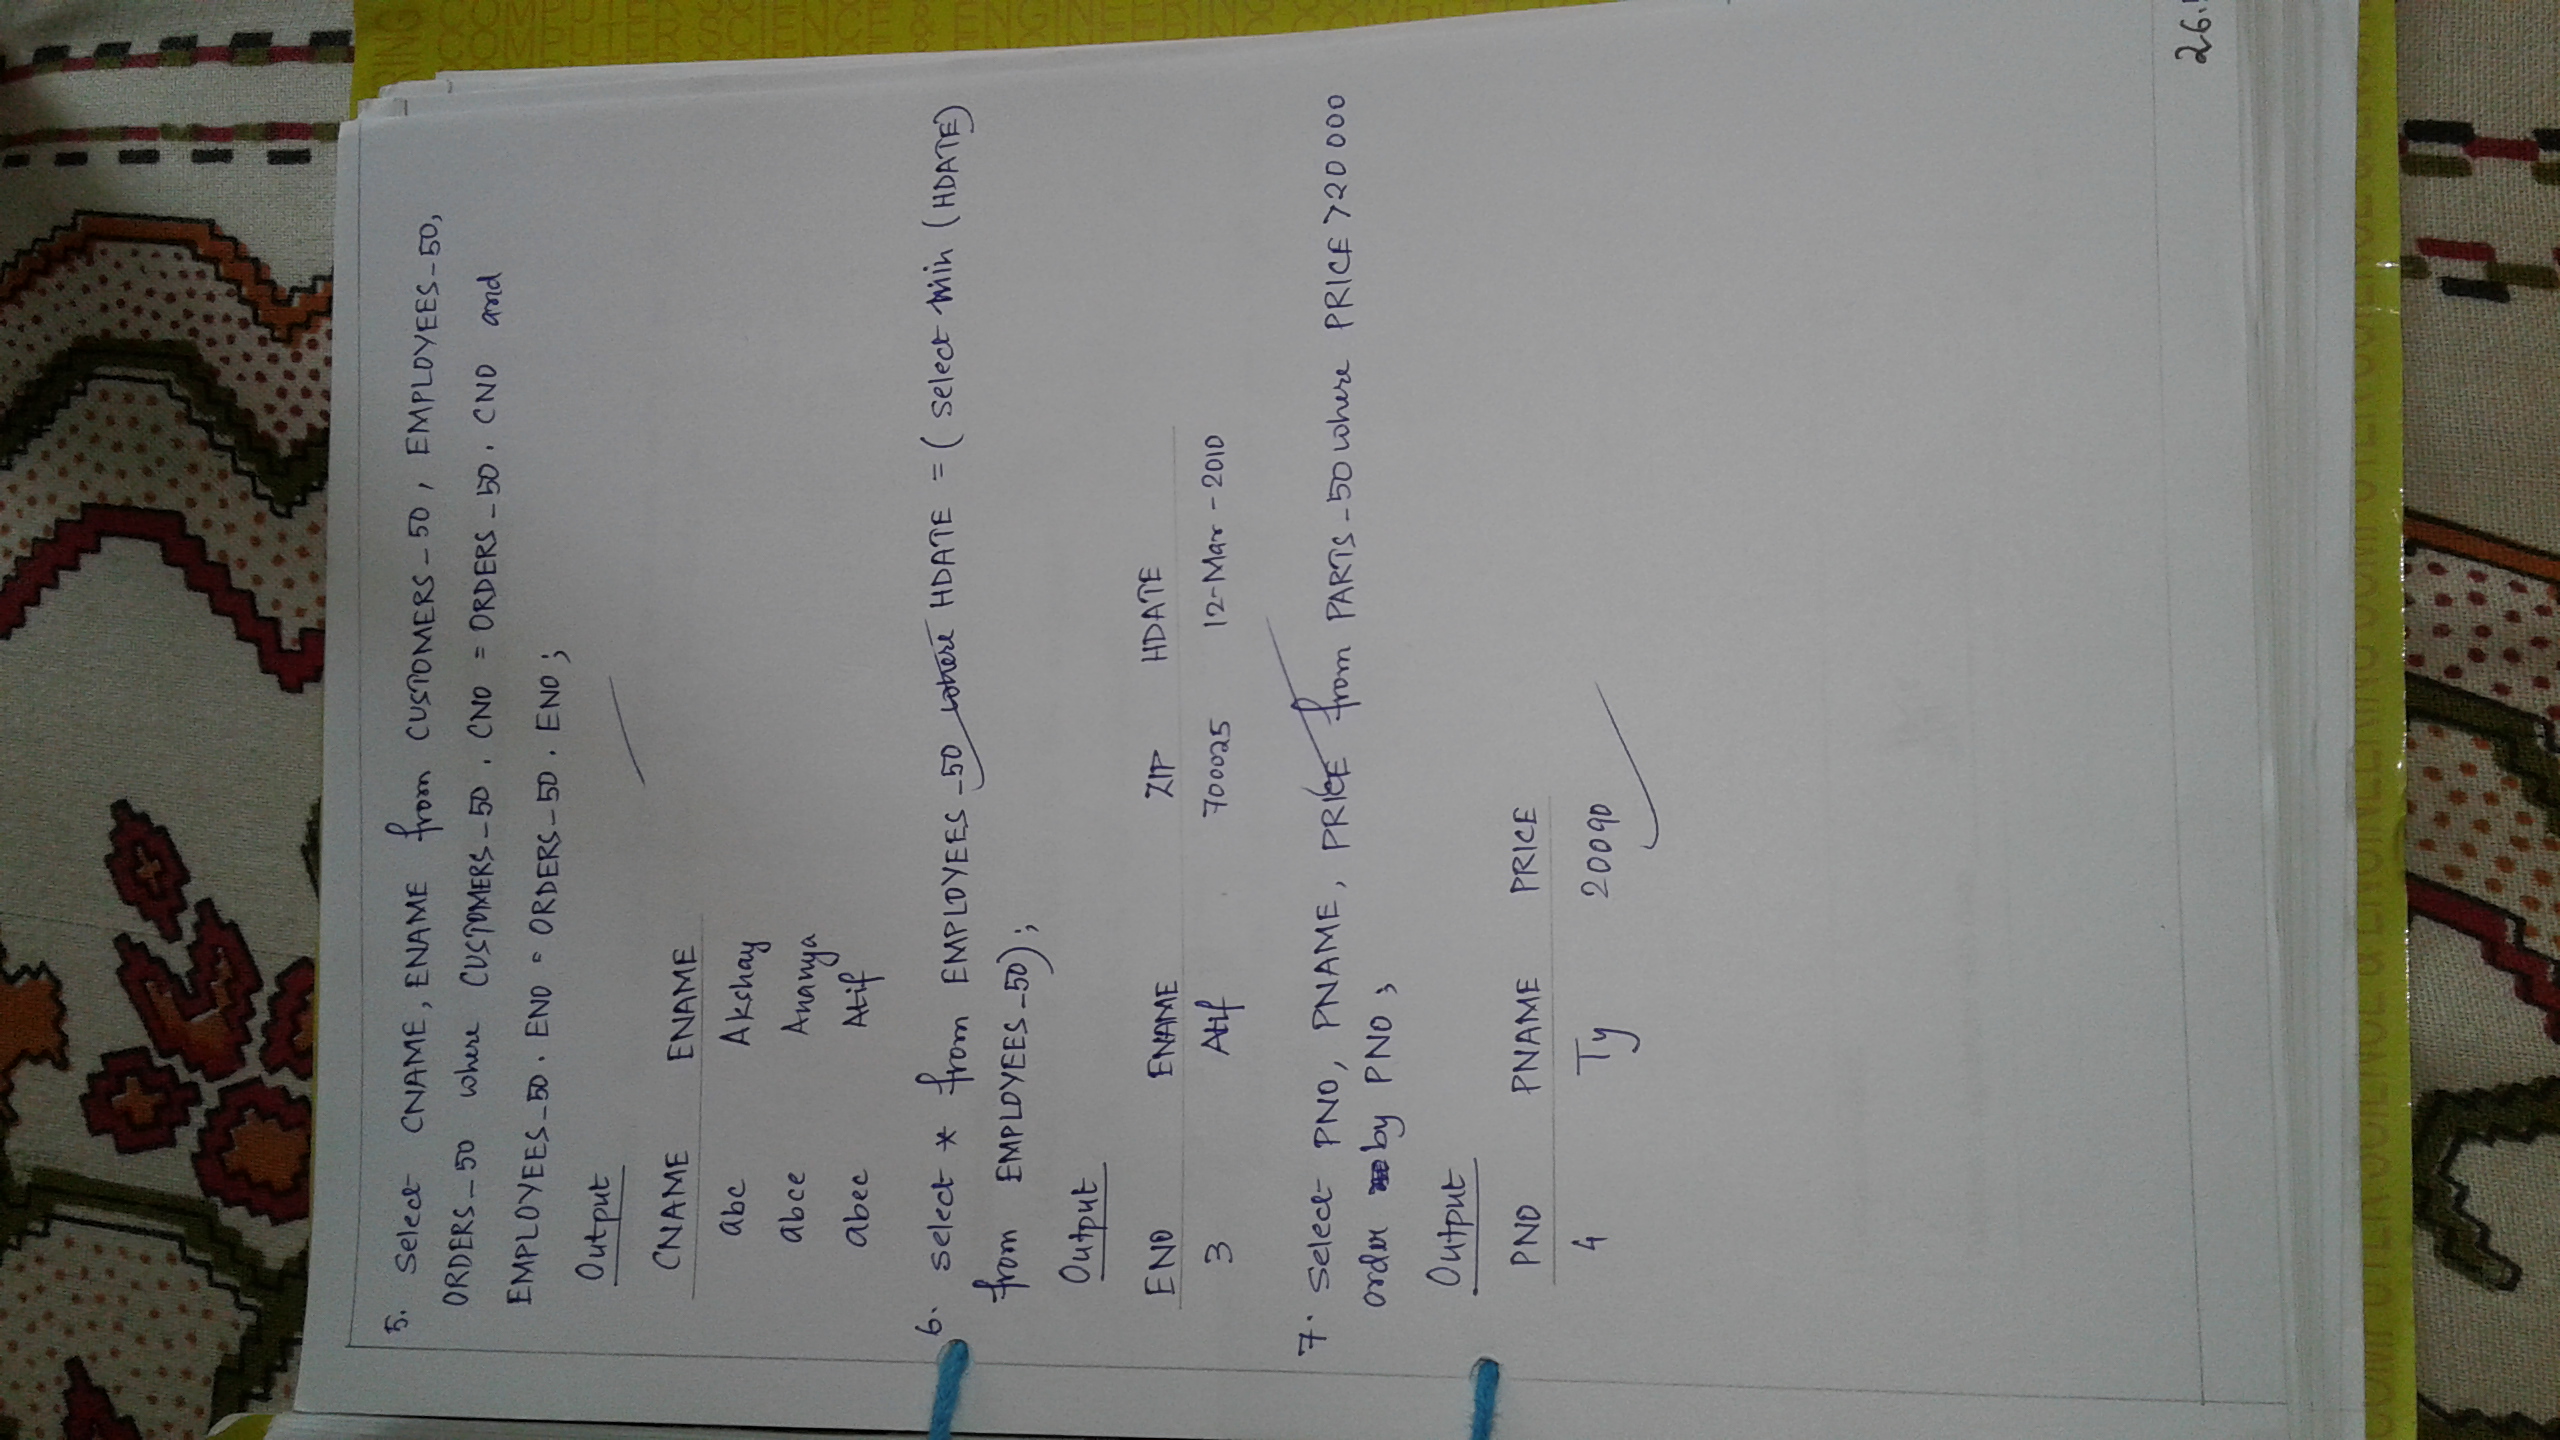 5. Select CNAME, ENAME from CUSTOMERS_50, EMPLOYEES_50,
ORDERS_50 where CUSTOMERS_50.CNO = ORDERS_50.CNO and
EMPLOYEES_50.ENO = ORDERS_50.ENO;
Output
CNAME ENAME
abc Akshay
abce Ananya
abec Atif
6. select * from EMPLOYEES_50 where HDATE = (select min (HDATE)
from EMPLOYEES_50);
Output
ENO ENAME ZIP HDATE
3 Atif 700025 12-Mar-2010
7. Select PNO, PNAME, PRICE from PARTS_50 where PRICE >20000
order by PNO;
Output
PNO PNAME PRICE
4 Ty 20090
26.
COMPUTER SCIENCE & ENGINEERING COMPUTER SCIENCE & ENGINE
RING COMPUTER SCIENCE & ENGINEERING